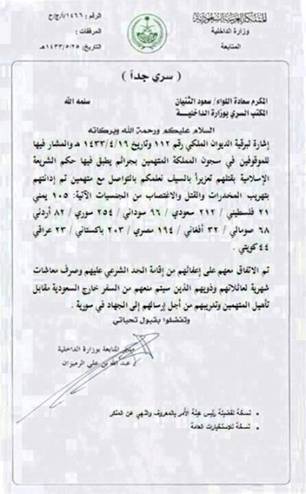 المملكة العربية السعودية
وزارة الداخلية
المتابعة
الرقم : ١٤٦٦/أ/ج/ح
المرفقات :
التاريخ: ١٤٣٣/٥/٢٥هـ
( سري جداً )
المكرم سعادة اللواء/ سعود الثنيان سلمه الله
المكتب السري بوزارة الداخلية
السلام عليكم ورحمة الله وبركاته
إشارة لبرقية الديوان الملكي رقم ١١٢ وتاريخ ١٤٣٣/٤/١٩هـ والمشار فيها
للموقوفين في سجون المملكة المتهمين بجرائم يطبق فيها حكم الشريعة
الإسلامية بقتلهم تعزيراً بالسيف نعلمكم بالتواصل مع متهمين تم إدانتهم
بتهريب المخدرات والقتل والاغتصاب من الجنسيات الآتية: ١٠٥ يمني
٢١ فلسطيني / ٢١٢ سعودي / ٦٦ سوداني / ٢٥٤ سوري / ٨٢ أردني
٦٨ صومالي / ٣٢ أفغاني / ١٦٤ مصري / ٢٠٣ باكستاني / ٢٣ عراقي
٤٤ كويتي .
تم الاتفاق معهم على إعفائهم من إقامة الحد الشرعي عليهم وصرف معاشات
شهرية لعائلاتهم وذويهم الذين سيتم منعهم من السفر خارج السعودية مقابل
تأهيل المتهمين وتدريبهم من أجل إرسالهم إلى الجهاد في سورية .
وتفضلوا بقبول تحياتي
مدير المتابعة بوزارة الداخلية
عبد الله بن علي الرميزان
نسخة لفضيلة رئيس هيئة الأمر بالمعروف والنهي عن المنكر
نسخة للاستخبارات العامة